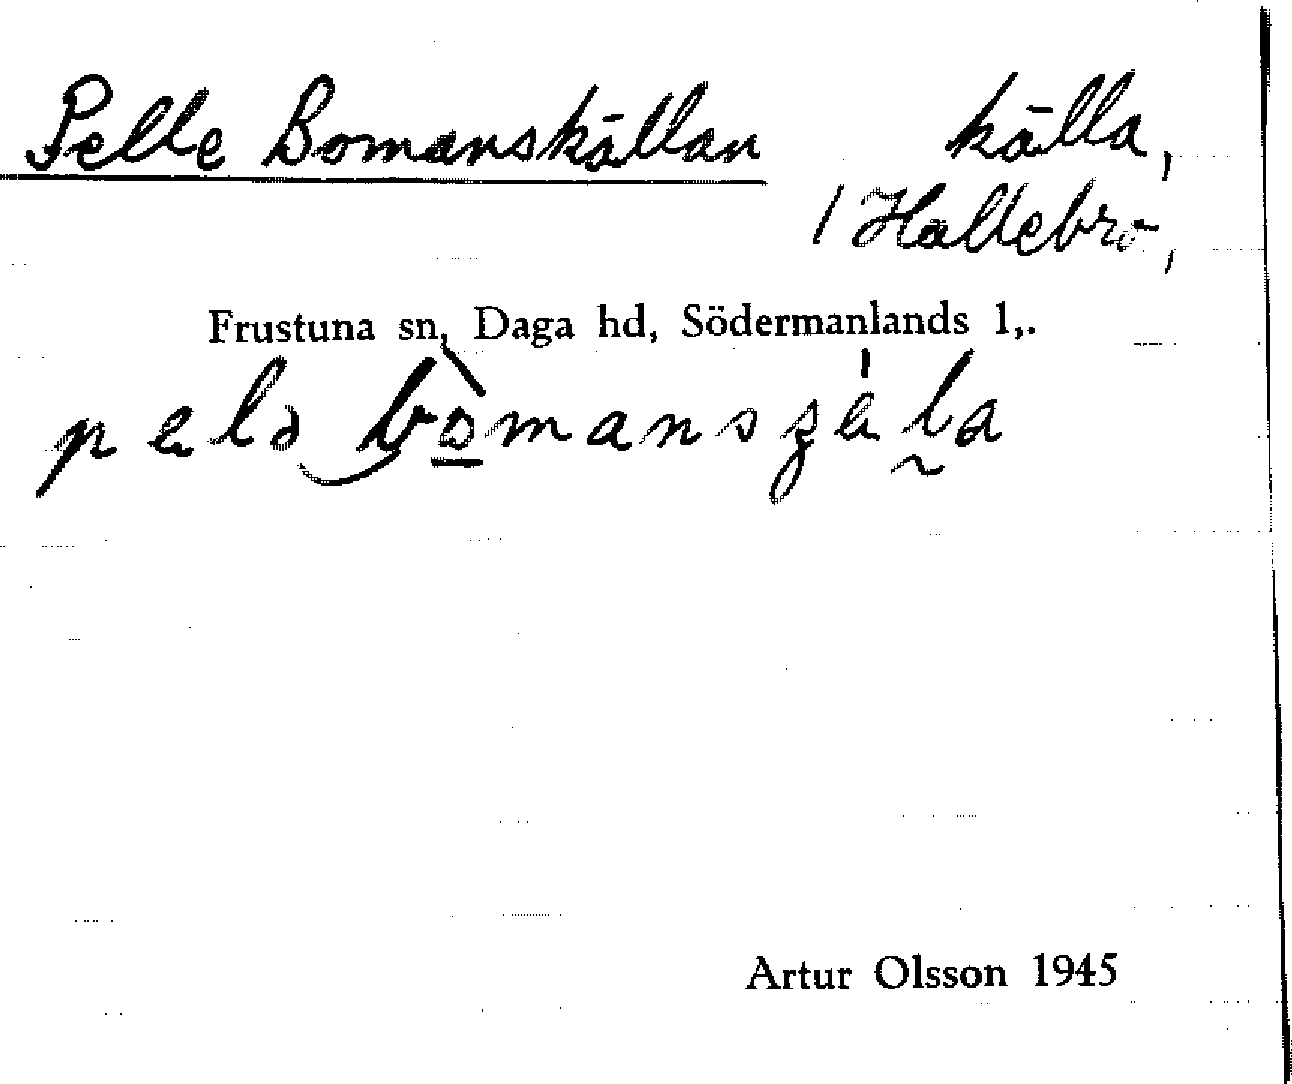 Pelle Bomanskällan källa,
/ Hallebro,
Frustuna sn, Daga hd, Södermanlands l,.
Artur Olsson 1945